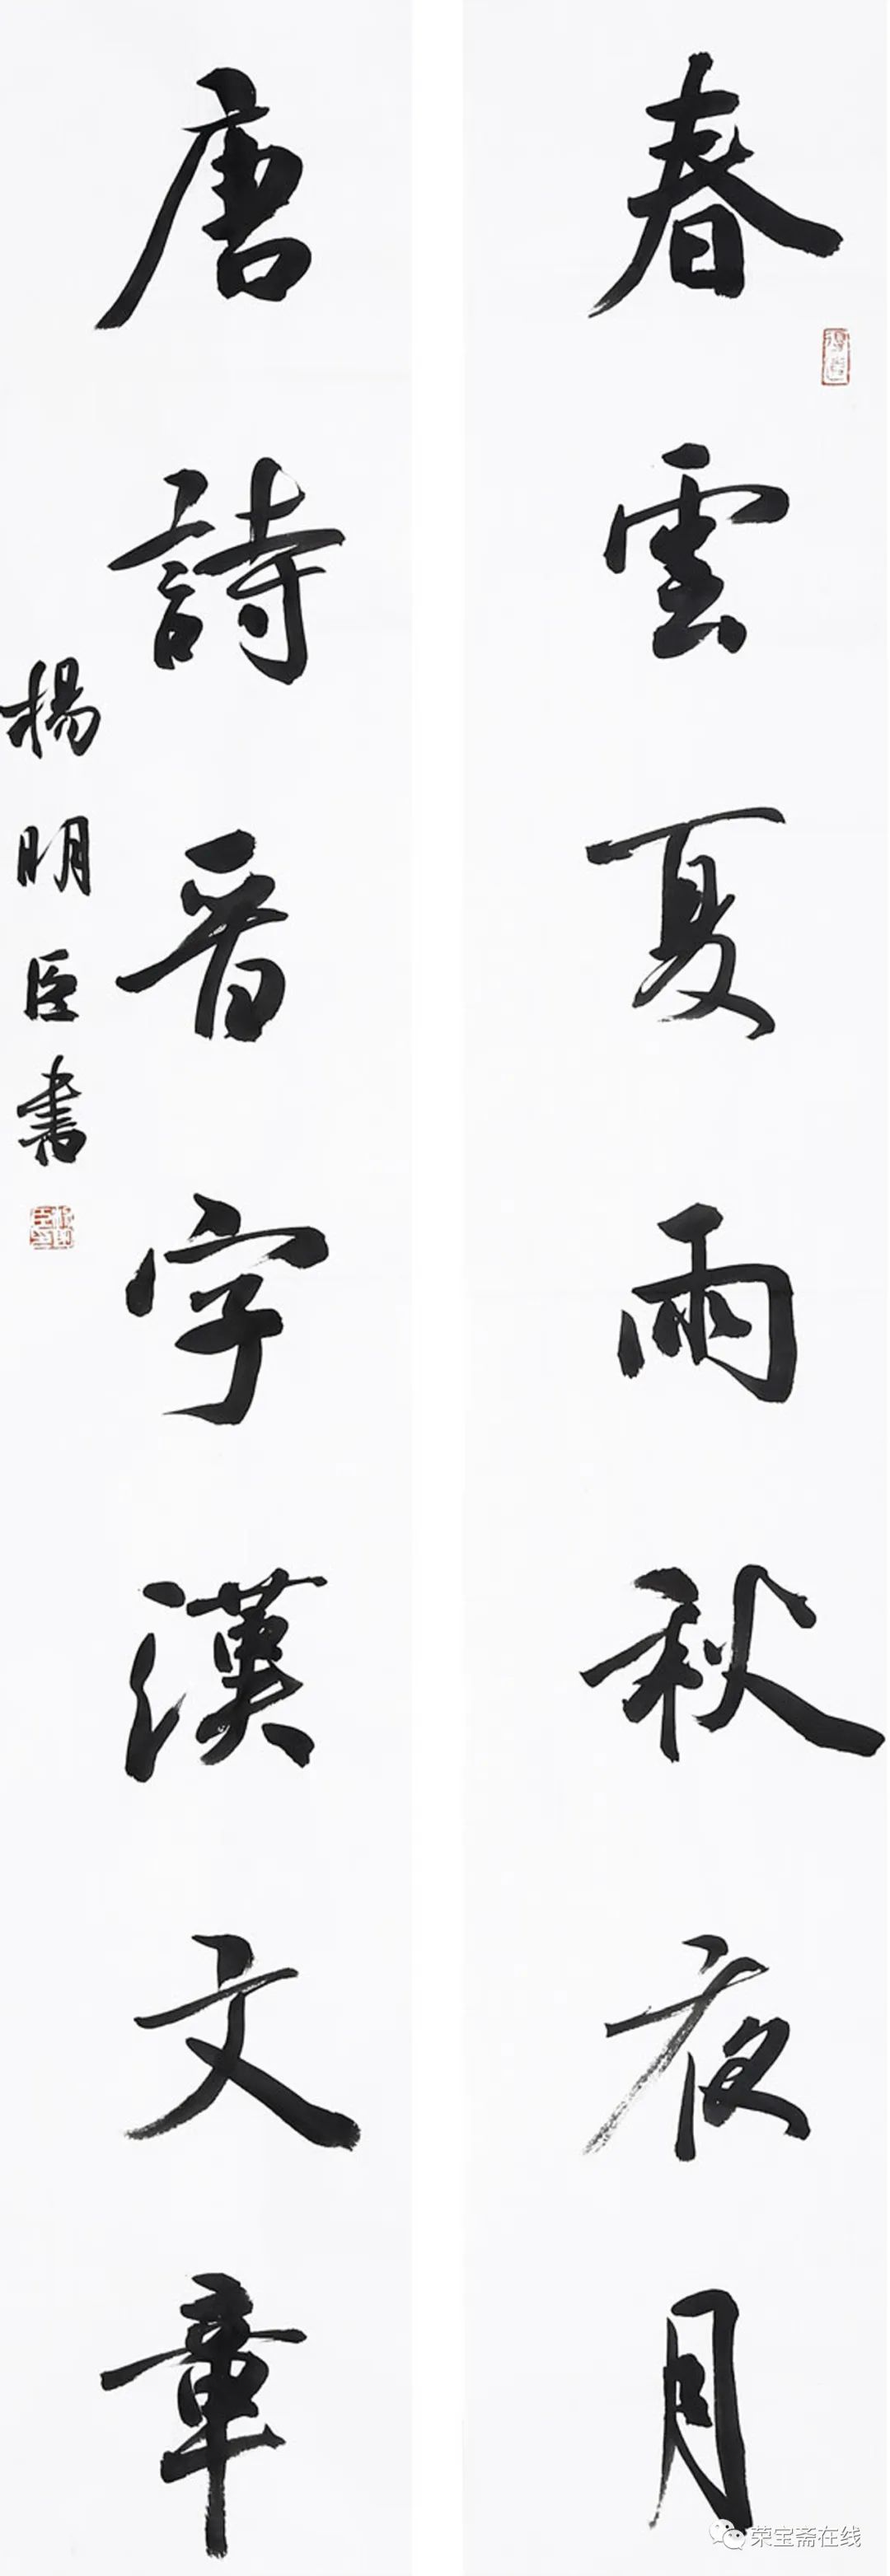 春雲夏雨秋夜月
唐詩晋字漢文章
楊明臣書
荣宝斋在线